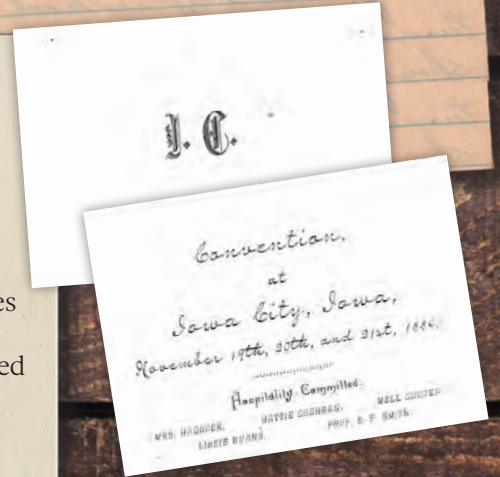 I. C.
Convention,
at
Iowa City, Iowa,
November 19th, 20th, and 21st, 188
Hospitality Committee:
MRS. HATTIE COCHRAN, NELL CUSTER
LIZZIE EVANS, PROF. D. F. SMITH.
es
ed